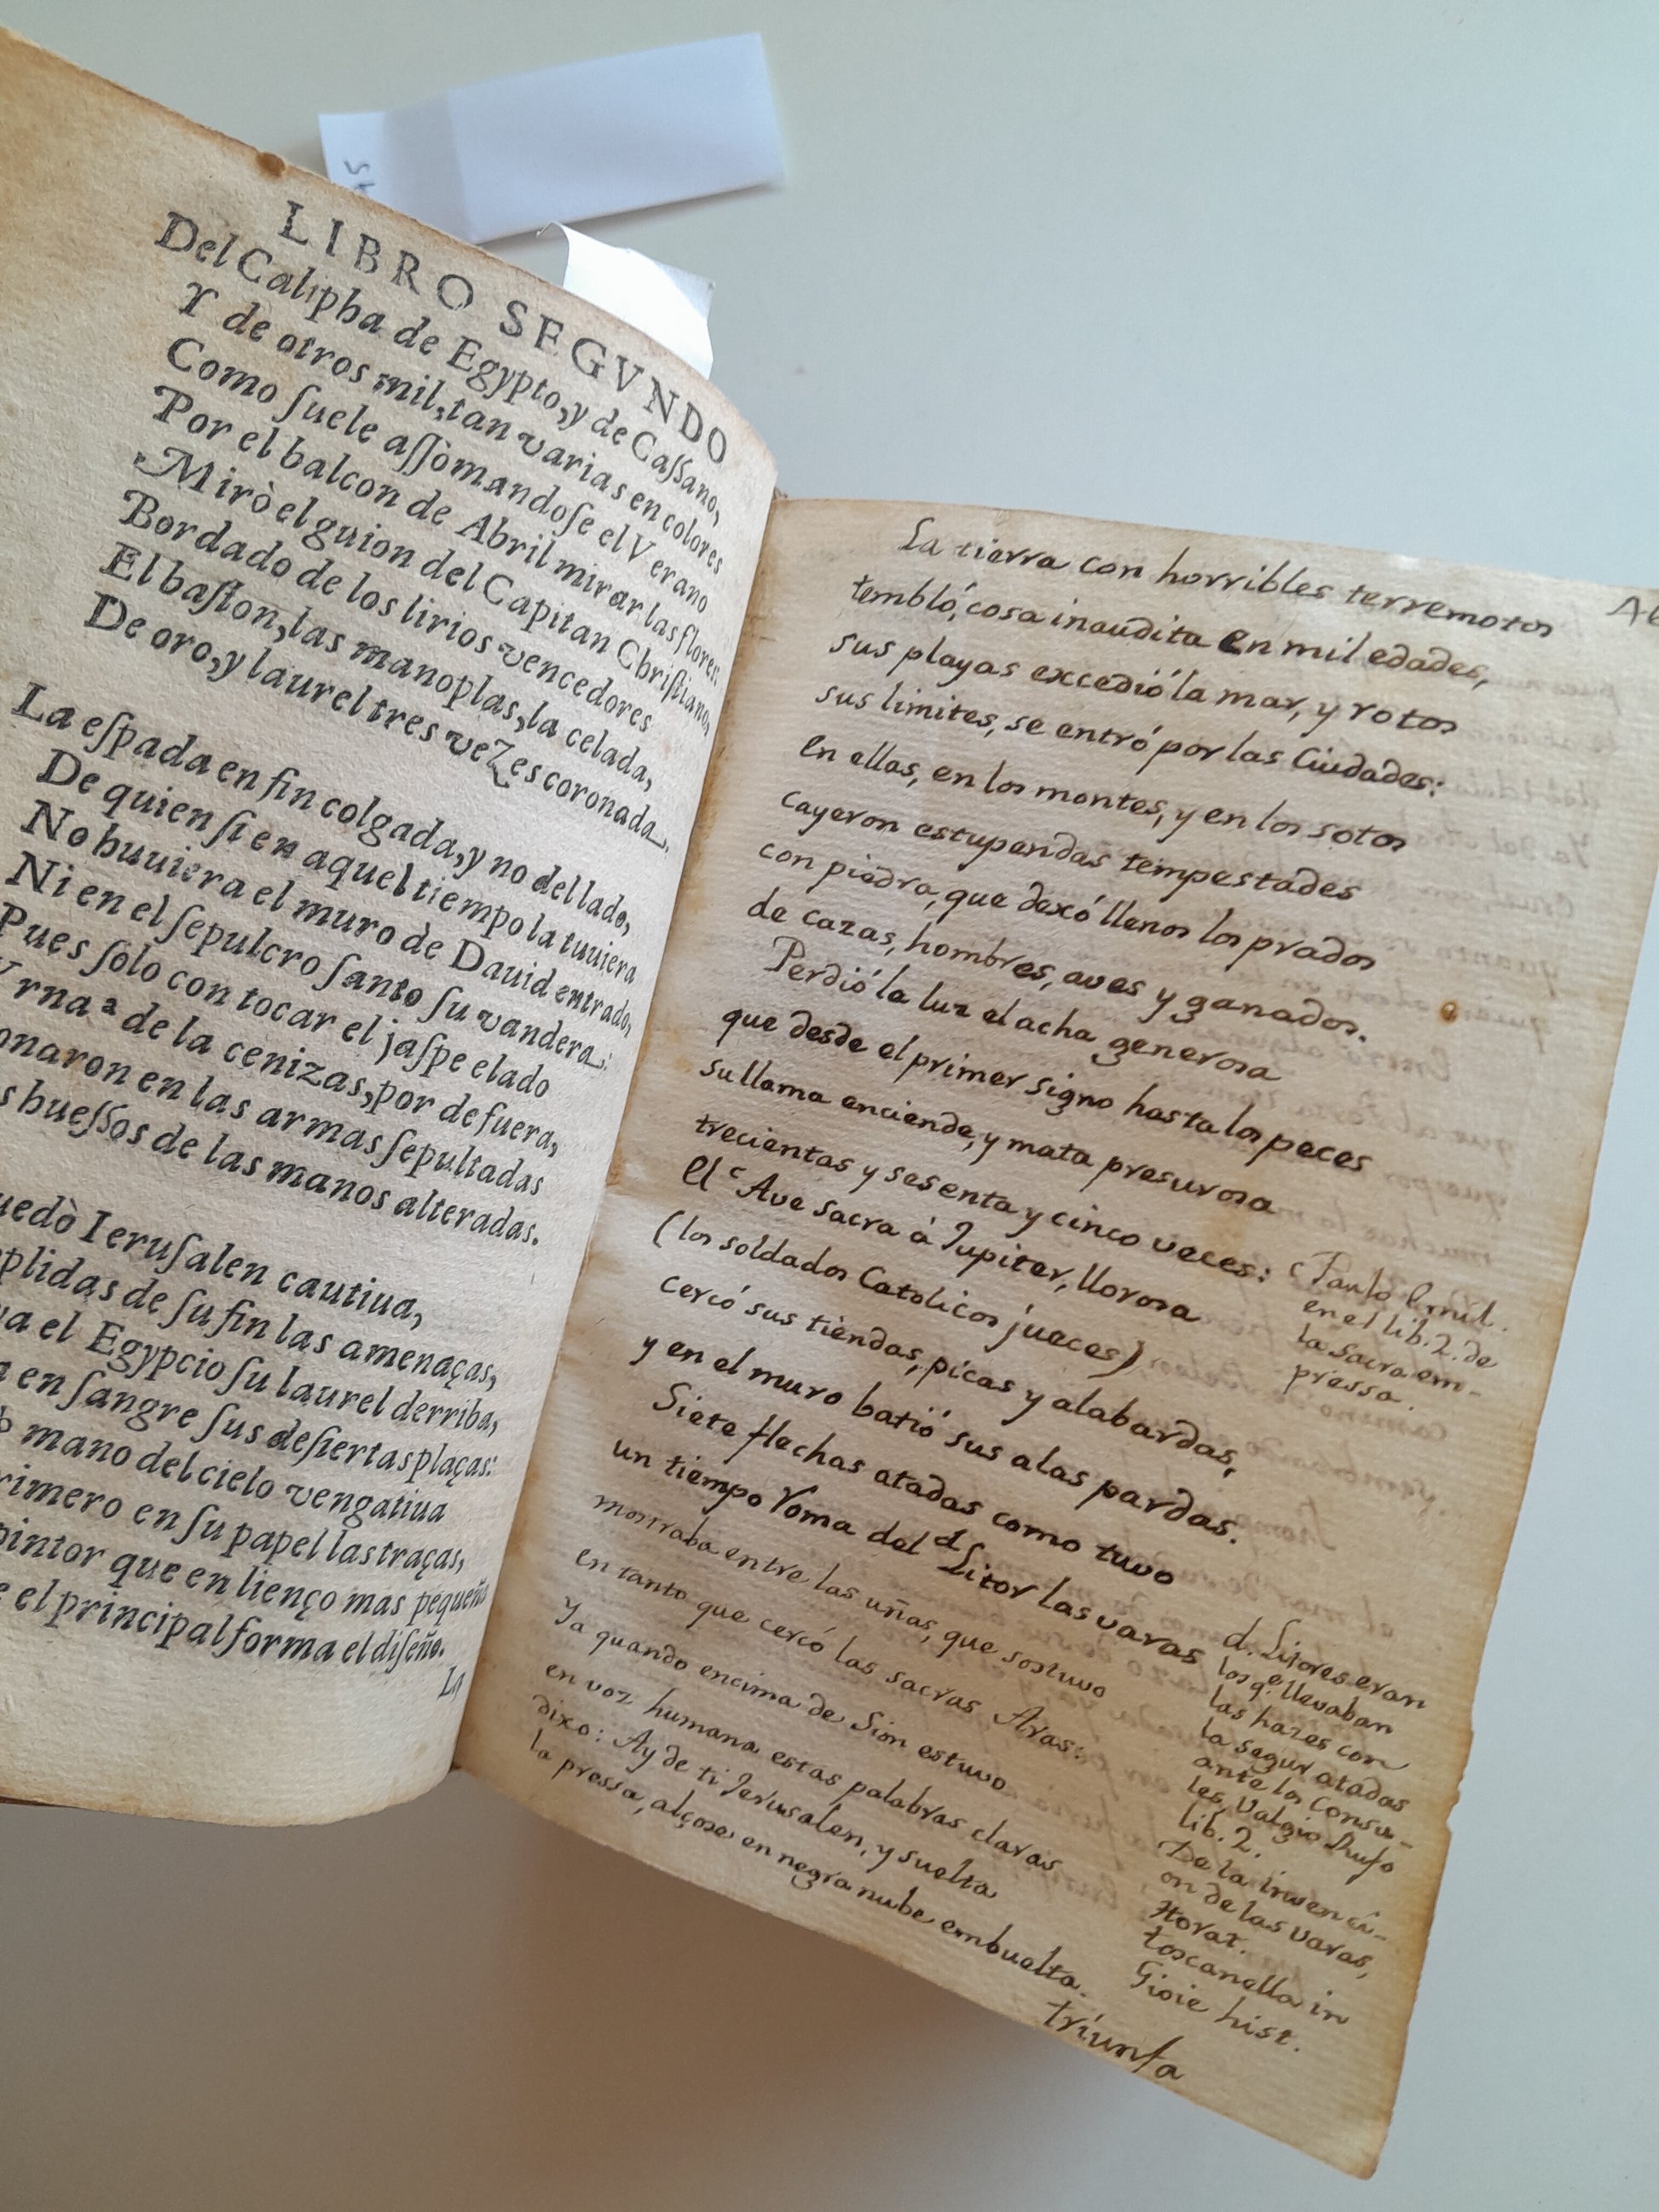 LIBRO SEGVNDO
Del Calipha de Egypto, y de Caſſano,
Y de otros mil, tan varias en colores
Como ſuele aſſòmandoſe el Verano
Por el balcon de Abril mirar las flores,
Mirò el guion del Capitan Chriſtiano,
Bordado de los lirios vencedores
El baſton, las manoplas, la celada,
De oro, y laurel tres vezes coronada.
La eſpada en fin colgada, y no del lado,
De quien ſi en aquel tiempo la tuuiera
No huuiera el muro de Dauid entrado,
Ni en el ſepulcro ſanto ſu vandera:
Pues ſolo con tocar el jaſpe elado
Vrna a de la cenizas, por de fuera,
onaron en las armas ſepultadas
s hueſſos de las manos alteradas.
uedò Ieruſalen cautiua,
plidas de ſu fin las amenaças,
a el Egypcio ſu laurel derriba,
a en ſangre ſus deſiertas plaças:
b mano del cielo vengatiua
rimero en ſu papel las traças,
pintor que en lienço mas pequeño
e el principal forma el diſeño.
La
La tierra con horribles terremotos
tembló, cosa inaudita en mil edades,
sus playas excedió la mar, y rotos
sus limites, se entró por las Ciudades:
En ellas, en los montes, y en los sotos
cayeron estupendas tempestades
con piedra, que dexó llenos los prados
de cazas, hombres, aves y ganados.
Perdió la luz el acha generosa
que desde el primer signo hasta los peces
su llama enciende, y mata presurosa
trecientas y sesenta y cinco veces:
El c Ave sacra á Jupiter, llorosa
(los soldados Catolicos jueces)
cercó sus tiendas, picas y alabardas,
y en el muro batió sus alas pardas.
Siete flechas atadas como tuvo
un tiempo Roma del d Litor las varas
mostraba entre las uñas, que sostuvo
en tanto que cercó las sacras Aras:
Ya quando encima de Sion estuvo
en voz humana estas palabras claras
dixo: Ay de ti Jerusalen, y suelta
la pressa, alçose en negra nube embuelta.
triunfa
c Paulo Emil.
en el lib. 2. de
la sacra em-
pressa.
d. Litores eran
los qe. llevaban
las hazes con
la segur atadas
ante los Consu-
les, Valgio Rufo
lib. 2.
De la invenci-
on de las varas,
Horat.
toscanella in
Gioie hist.